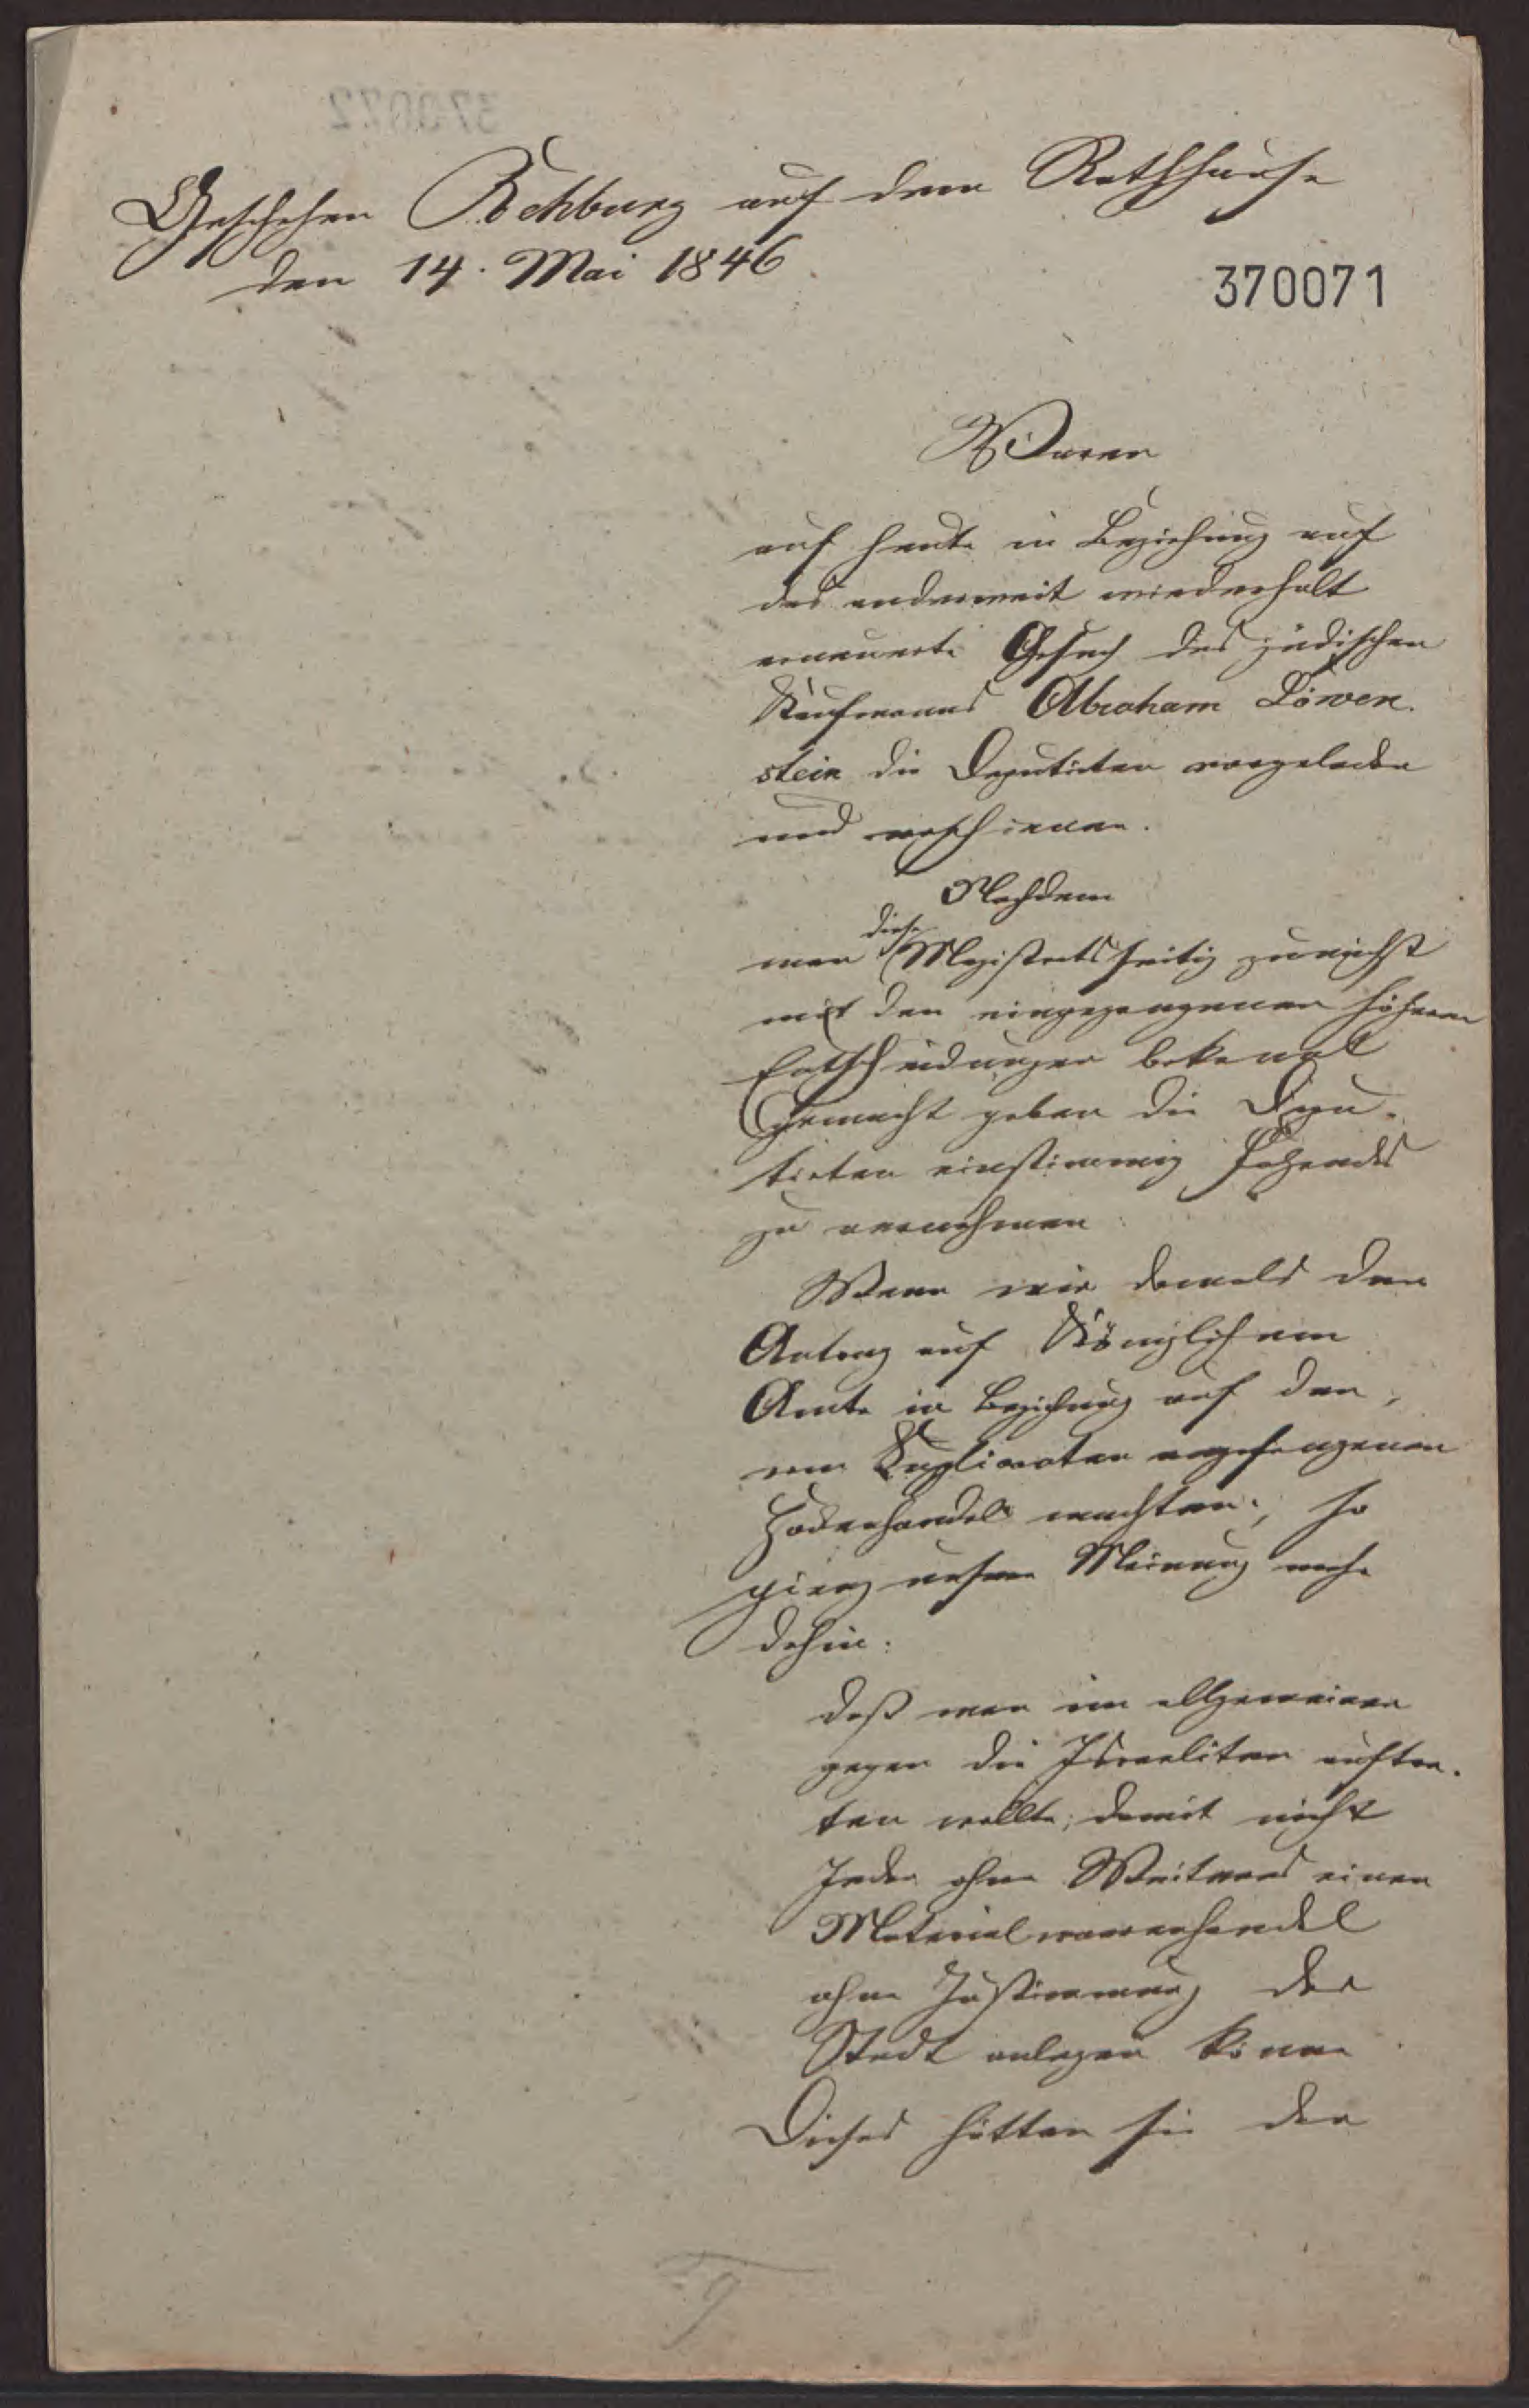 Geschehen Rehburg auf dem Rathhause
den 14. Mai 1846.
370071
Waren
auf heute in Beziehung auf
das anderweit wiederholt
erneuerte Gesuch des jüdischen
Kaufmanns Abraham Löwen-
stein die Deputirten vorgeladen
und erschienen.
Nachdem
diese
man Magistratsseitig zunächst
mit den eingegangenen höhern
Entscheidungen bekannt
gemacht geben die Depu-
tirten einstimmig Folgendes
zu vernehmen:
Wenn wir damals den
Antrag auf Königlichem
Amte in Beziehung auf den,
vom Supplicanten angefangenen
Hökerhandel machten, so
ging unsere Meinung mehr
dahin:
daß man im allgemeinen
gegen die Israeliten auftre-
ten wollte, damit nicht
Jeder ohne Weiteres einen
Materialwaarenhandel
ohne Zustimmung der
Stadt anlegen könne
Dieses hätten sie der